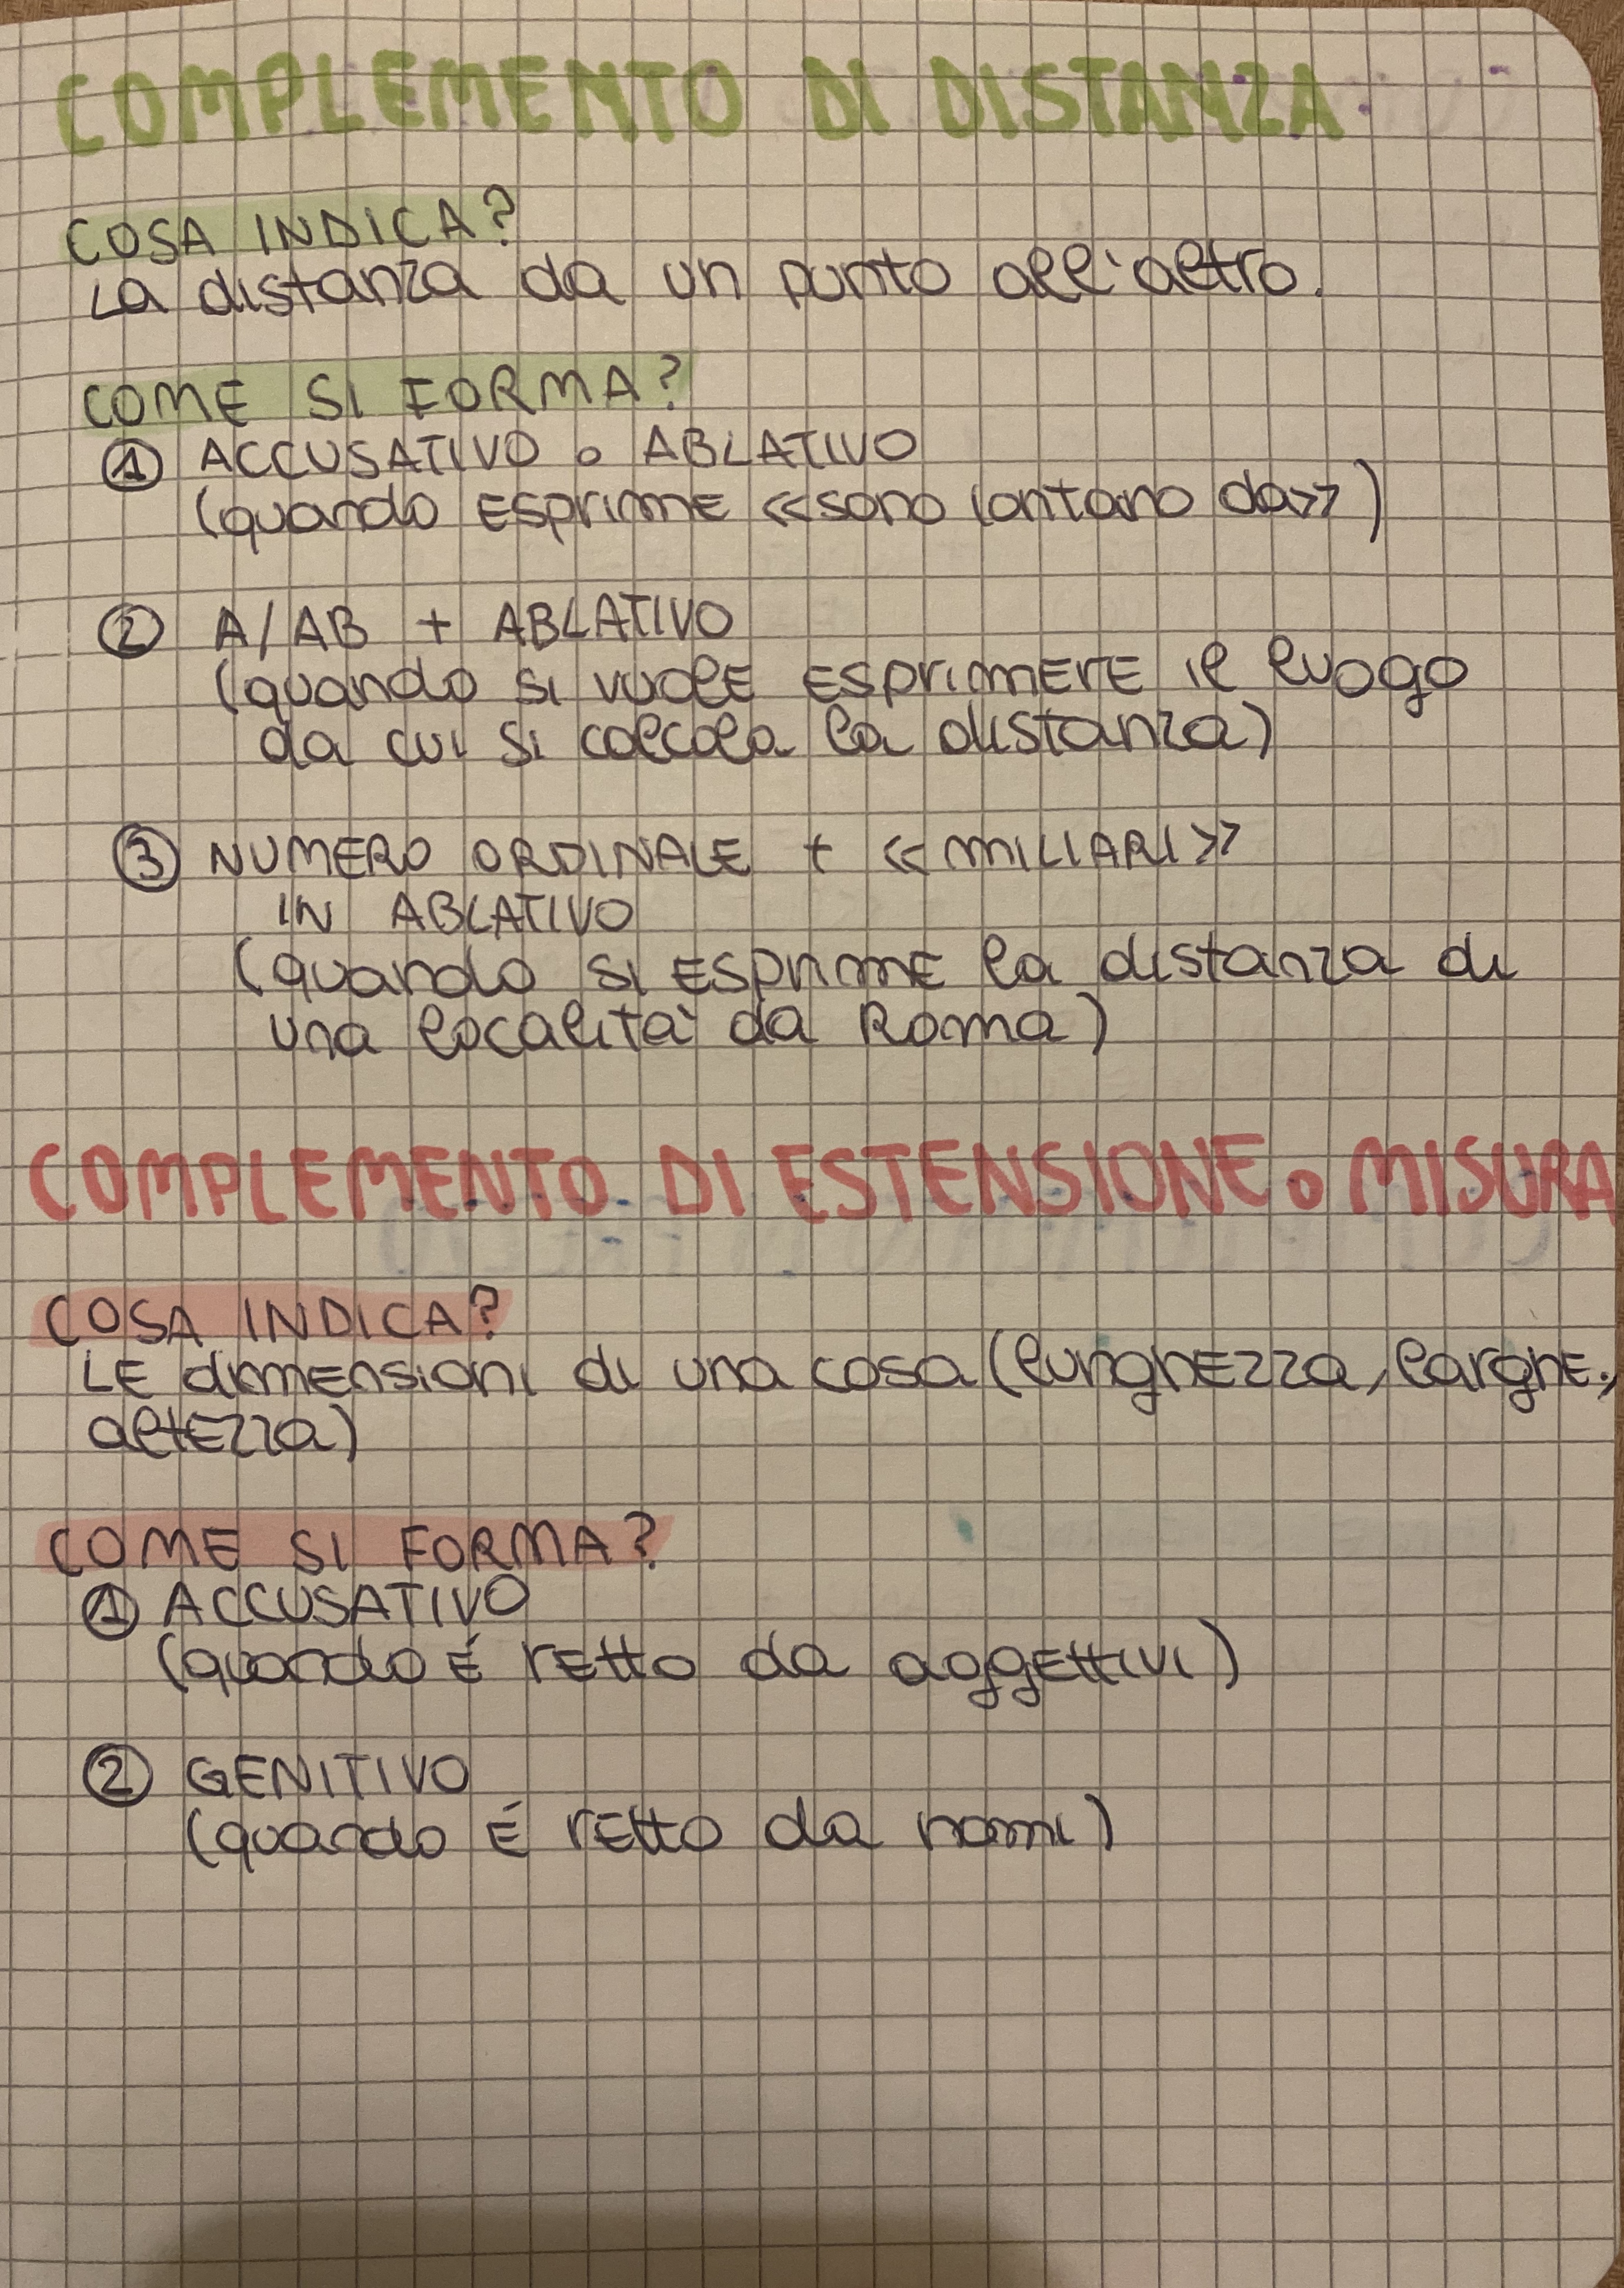 COMPLEMENTO DI DISTANZA
COSA INDICA?
La distanza da un punto all'altro.
COME SI FORMA?
① ACCUSATIVO o ABLATIVO
(quando esprime «sono lontano da»)
② A/AB + ABLATIVO
(quando si vuole esprimere il luogo
da cui si calcola la distanza)
③ NUMERO ORDINALE + «MILIARI»
IN ABLATIVO
(quando si esprime la distanza di
una località da Roma)
COMPLEMENTO DI ESTENSIONE o MISURA
COSA INDICA?
Le dimensioni di una cosa (lunghezza, larghe.,
altezza)
COME SI FORMA?
① ACCUSATIVO
(quando é retto da aggettivi)
② GENITIVO
(quando é retto da nomi)